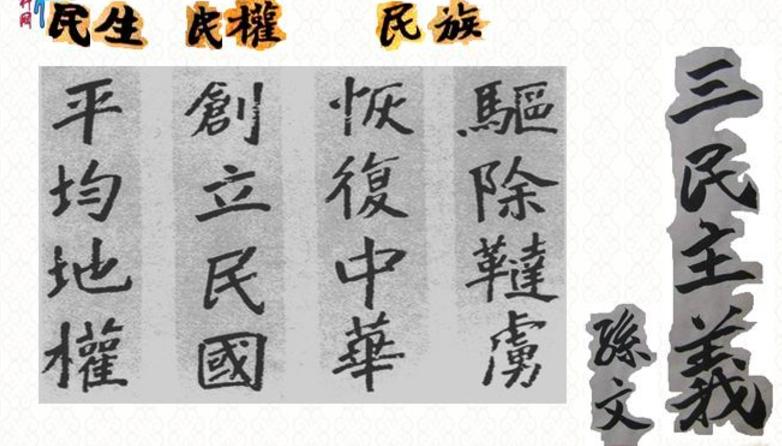 民生 民權 民族
三民主義
孫文
驅除韃虜
恢復中華
創立民國
平均地權